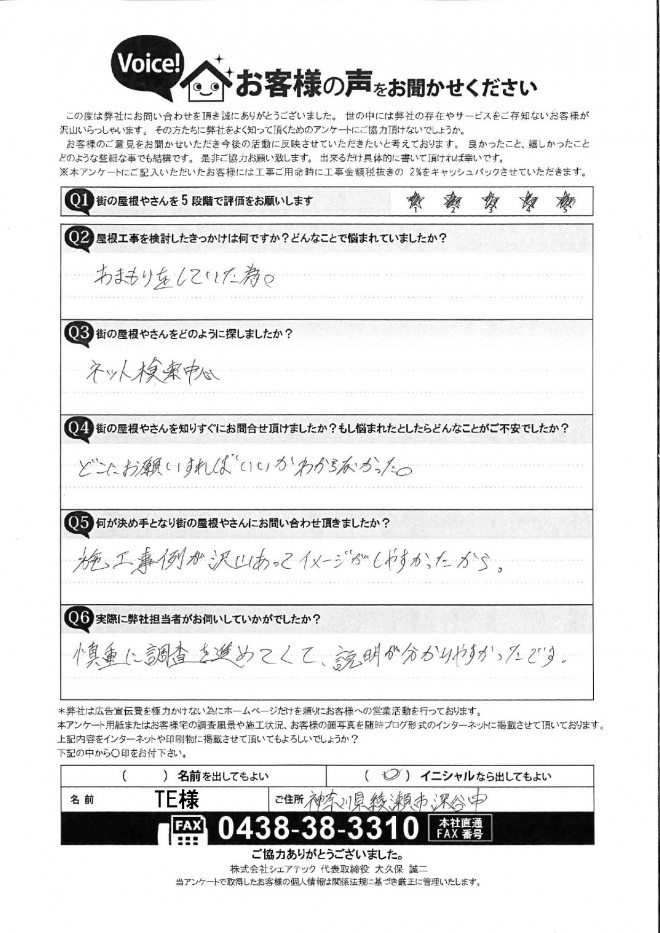 Voice!
お客様の声をお聞かせください
この度は弊社にお問い合わせを頂き誠にありがとうございました。 世の中には弊社の存在やサービスをご存知ないお客様が
沢山いらっしゃいます。 その方たちに弊社をよく知って頂くためのアンケートにご協力頂けないでしょうか。
お客様のご意見をお聞かせいただき今後の活動に反映させていただきたいと考えております。 良かったこと、嬉しかったこと
どのような些細な事でも結構です。 是非ご協力お願い致します。 出来るだけ具体的に書いて頂ければ幸いです。
※本アンケートにご記入いただいたお客様には工事ご用命時に工事金額税抜きの 2%をキャッシュバックさせていただきます。
Q1 街の屋根やさんを5段階で評価をお願いします
1 2 3 4 5
Q2 屋根工事を検討したきっかけは何ですか？どんなことで悩まれていましたか？
あまもりをしていた為。
Q3 街の屋根やさんをどのように探しましたか？
ネット検索中心
Q4 街の屋根やさんを知りすぐにお問合せ頂けましたか？もし悩まれたとしたらどんなことがご不安でしたか？
どこにお願いすればいいかわからなかった。
Q5 何が決め手となり街の屋根やさんにお問い合わせ頂きましたか？
施工事例が沢山あってイメージがしやすかったから。
Q6 実際に弊社担当者がお伺いしていかがでしたか？
慎重に調査を進めてくて、説明が分かりやすかったです。
＊弊社は広告宣伝費を極力かけない為にホームページだけを頼りにお客様への営業活動を行っております。
本アンケート用紙またはお客様宅の調査風景や施工状況、お客様の顔写真を随時ブログ形式のインターネットに掲載させて頂いております。
上記内容をインターネットや印刷物に掲載させて頂いてもよろしいでしょうか？
下記の中から〇印をお付下さい。
（ ）名前を出してもよい （〇）イニシャルなら出してもよい
名前 TE様 ご住所 神奈川県綾瀬市深谷中
FAX 0438-38-3310 本社直通 FAX 番号
ご協力ありがとうございました。
株式会社シェアテック 代表取締役 大久保 誠二
当アンケートで取得したお客様の個人情報は関係法規に基づき厳正に管理いたします。